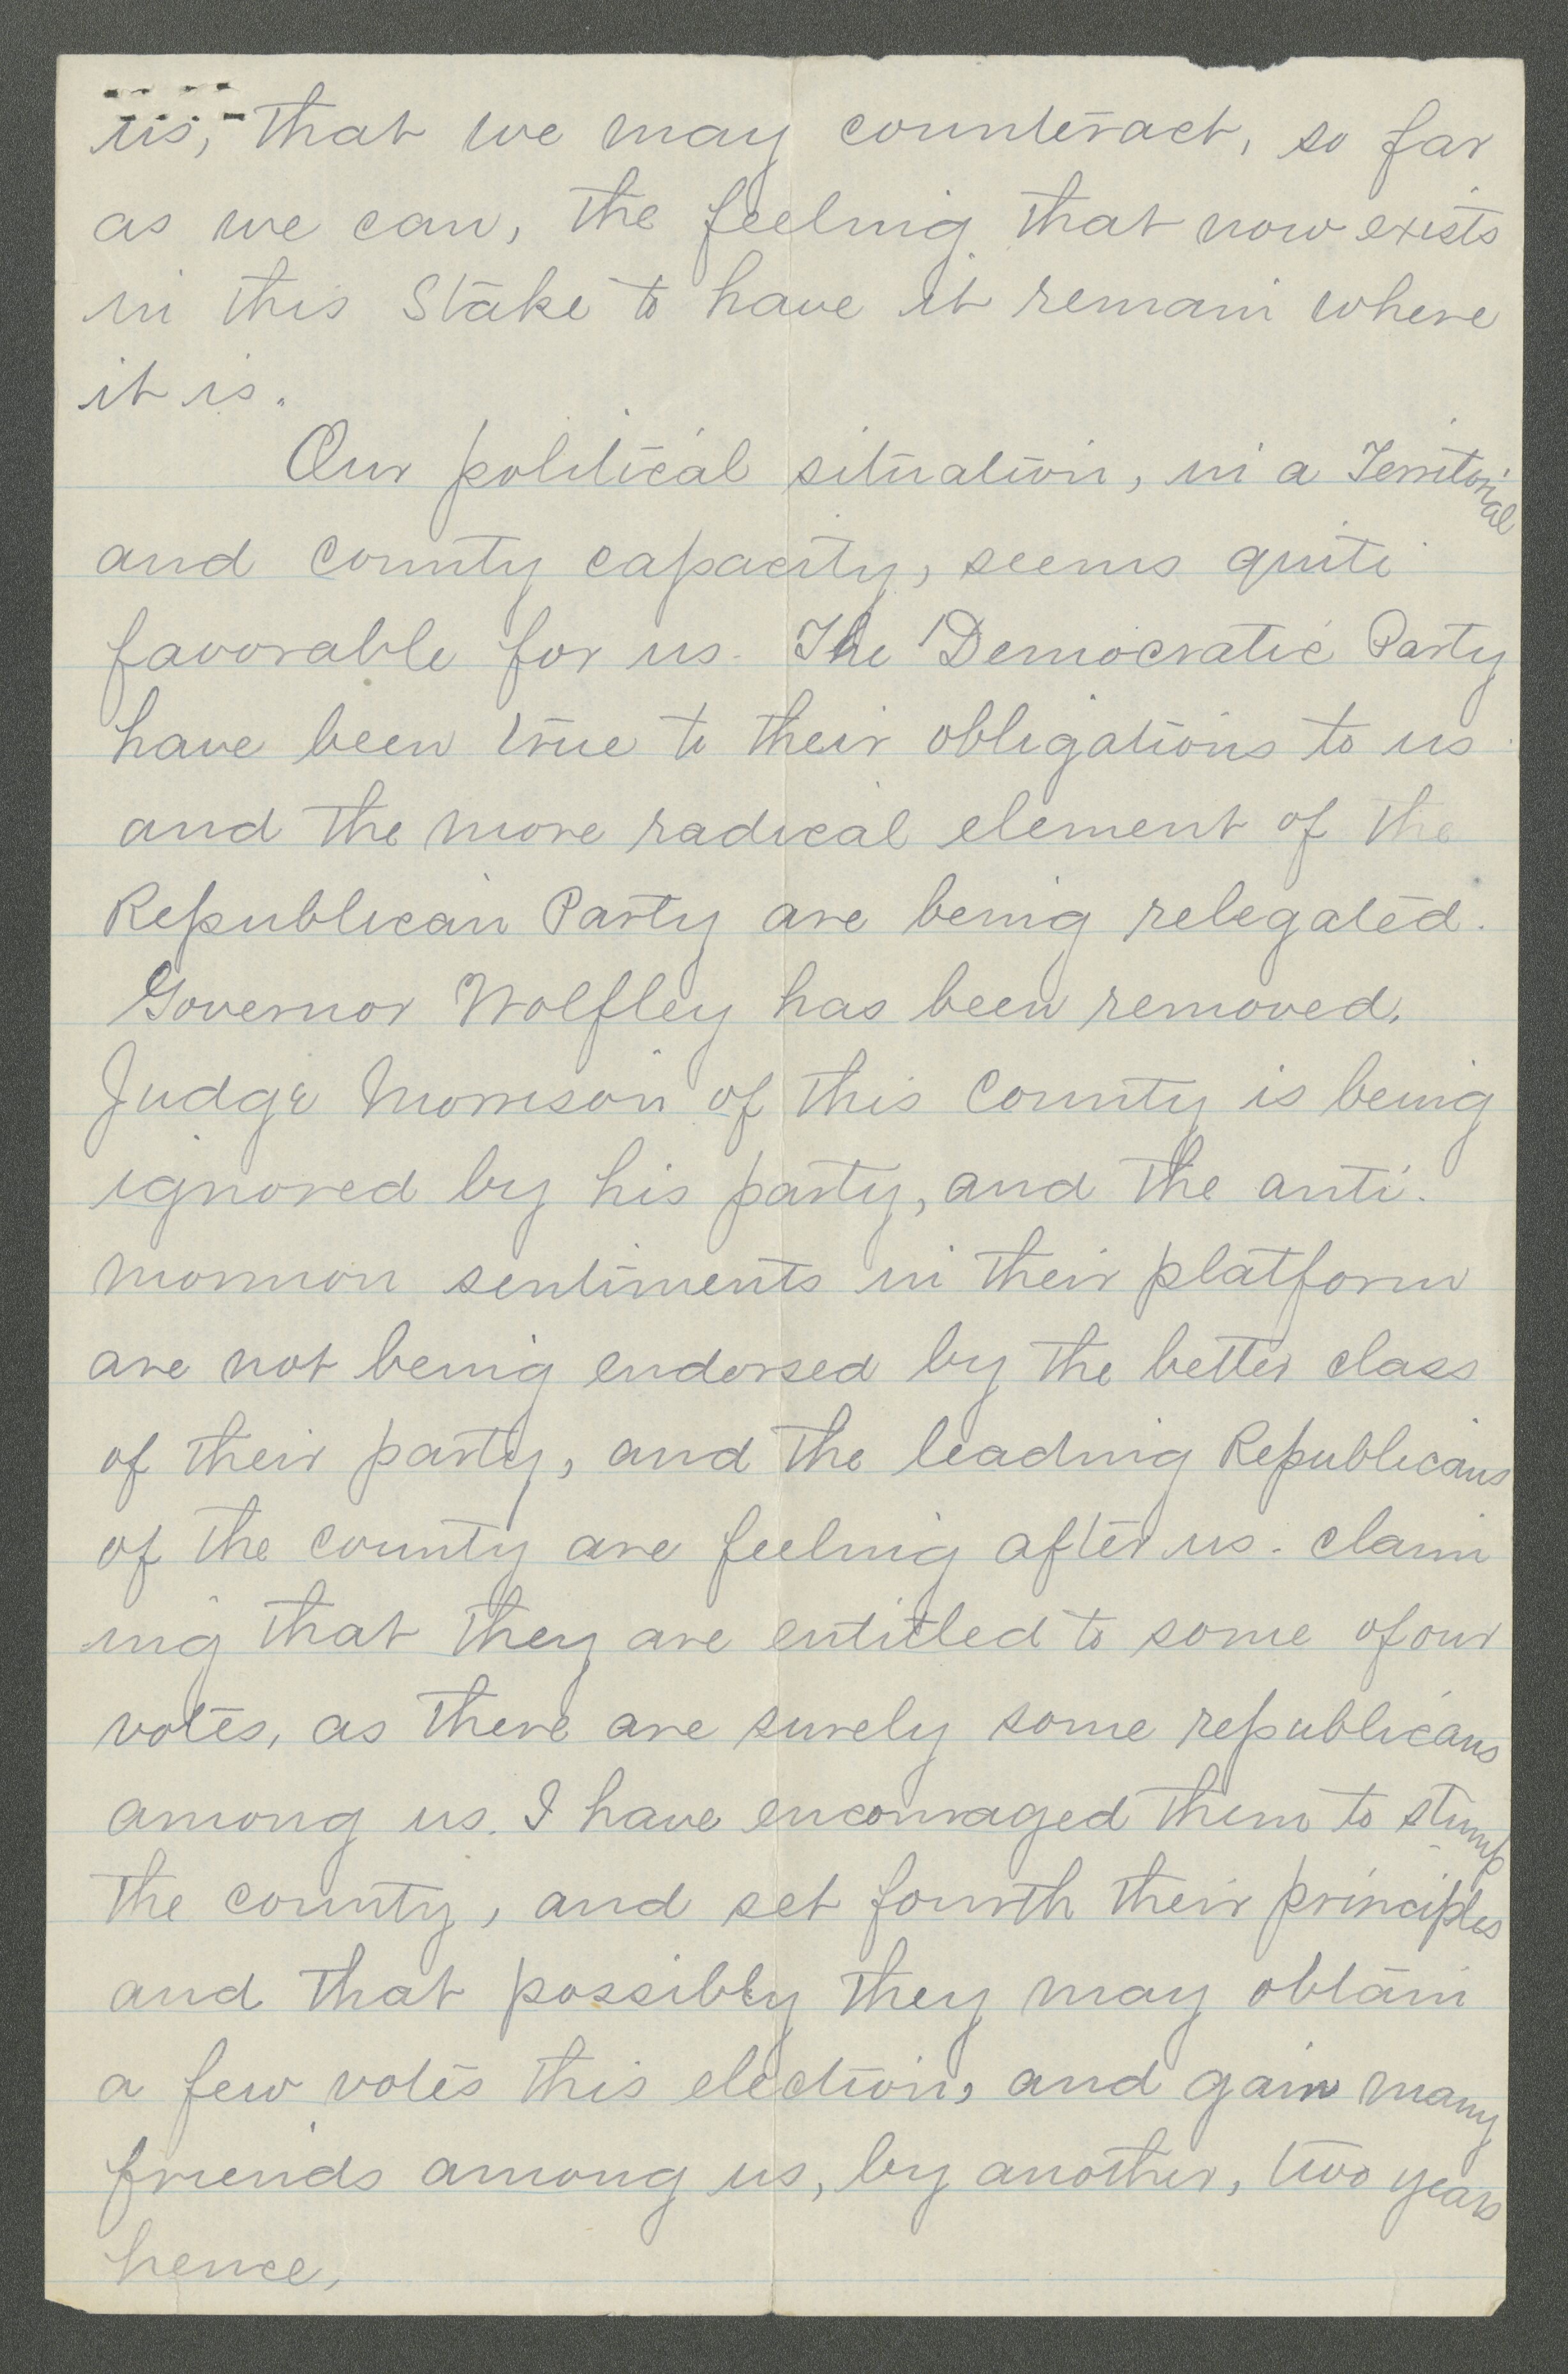 us, that we may counteract, so far
as we can, the feeling that now exists
in this Stake to have it remain where
it is.
Our political situation, in a Territorial
and county capacity, seems quite
favorable for us. The Democratic Party
have been true to their obligations to us
and the more radical element of the
Republican Party are being relegated.
Governor Wolfley has been removed.
Judge Morrison of this County is being
ignored by his party, and the anti-
mormon sentiments in their platform
are not being endorsed by the better class
of their party, and the leading Republicans
of the county are feeling after us. claim
ing that they are entitled to some of our
votes, as there are surely some republicans
among us. I have encouraged them to stump
the county, and set fourth their principles
and that possibly they may obtain
a few votes this election, and gain many
friends among us, by another, two years
hence,